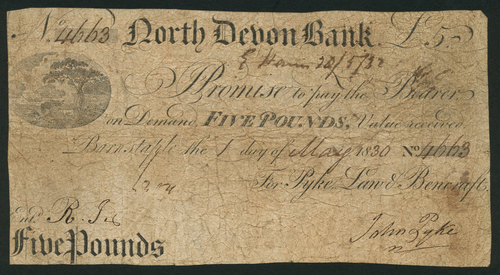 No. 4663 North Devon Bank. £5
28/5/32
I Promise to pay the Bearer
on Demand, FIVE POUNDS, Value received
Barnstaple the 1 day of May 1830 No 4663
For Pyke, Law & Bencraft.
John Pyke
Five Pounds